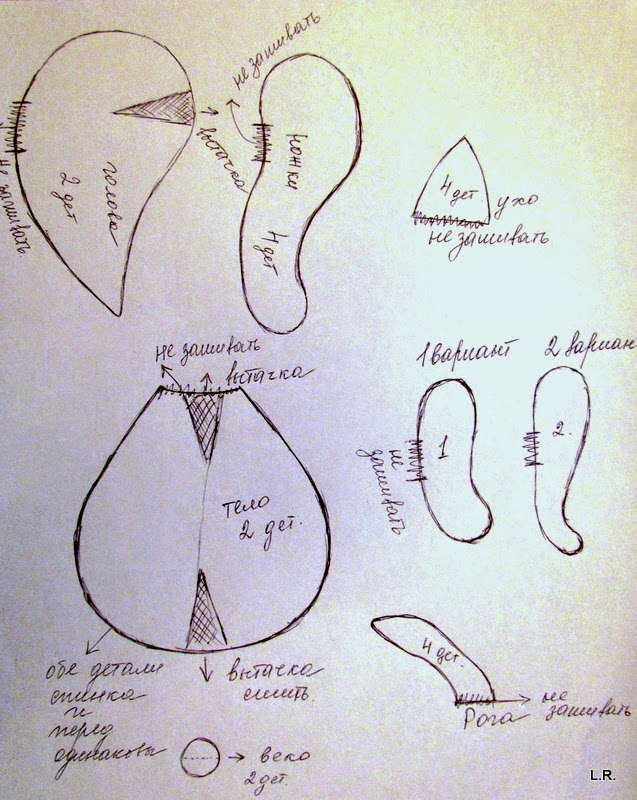 не зашивать
голова
2 дет
вытачка
не зашивать
ножки
4 дет
4 дет.
ухо
не зашивать
не зашивать
вытачка
тело
2 дет.
1 вариант
2 вариан
1
2.
не
зашивать
обе детали
спинка
и
перед
одинаковы
вытачка
сшить.
4 дет.
Рога
не
зашивать
веко
2 дет.
L.R.